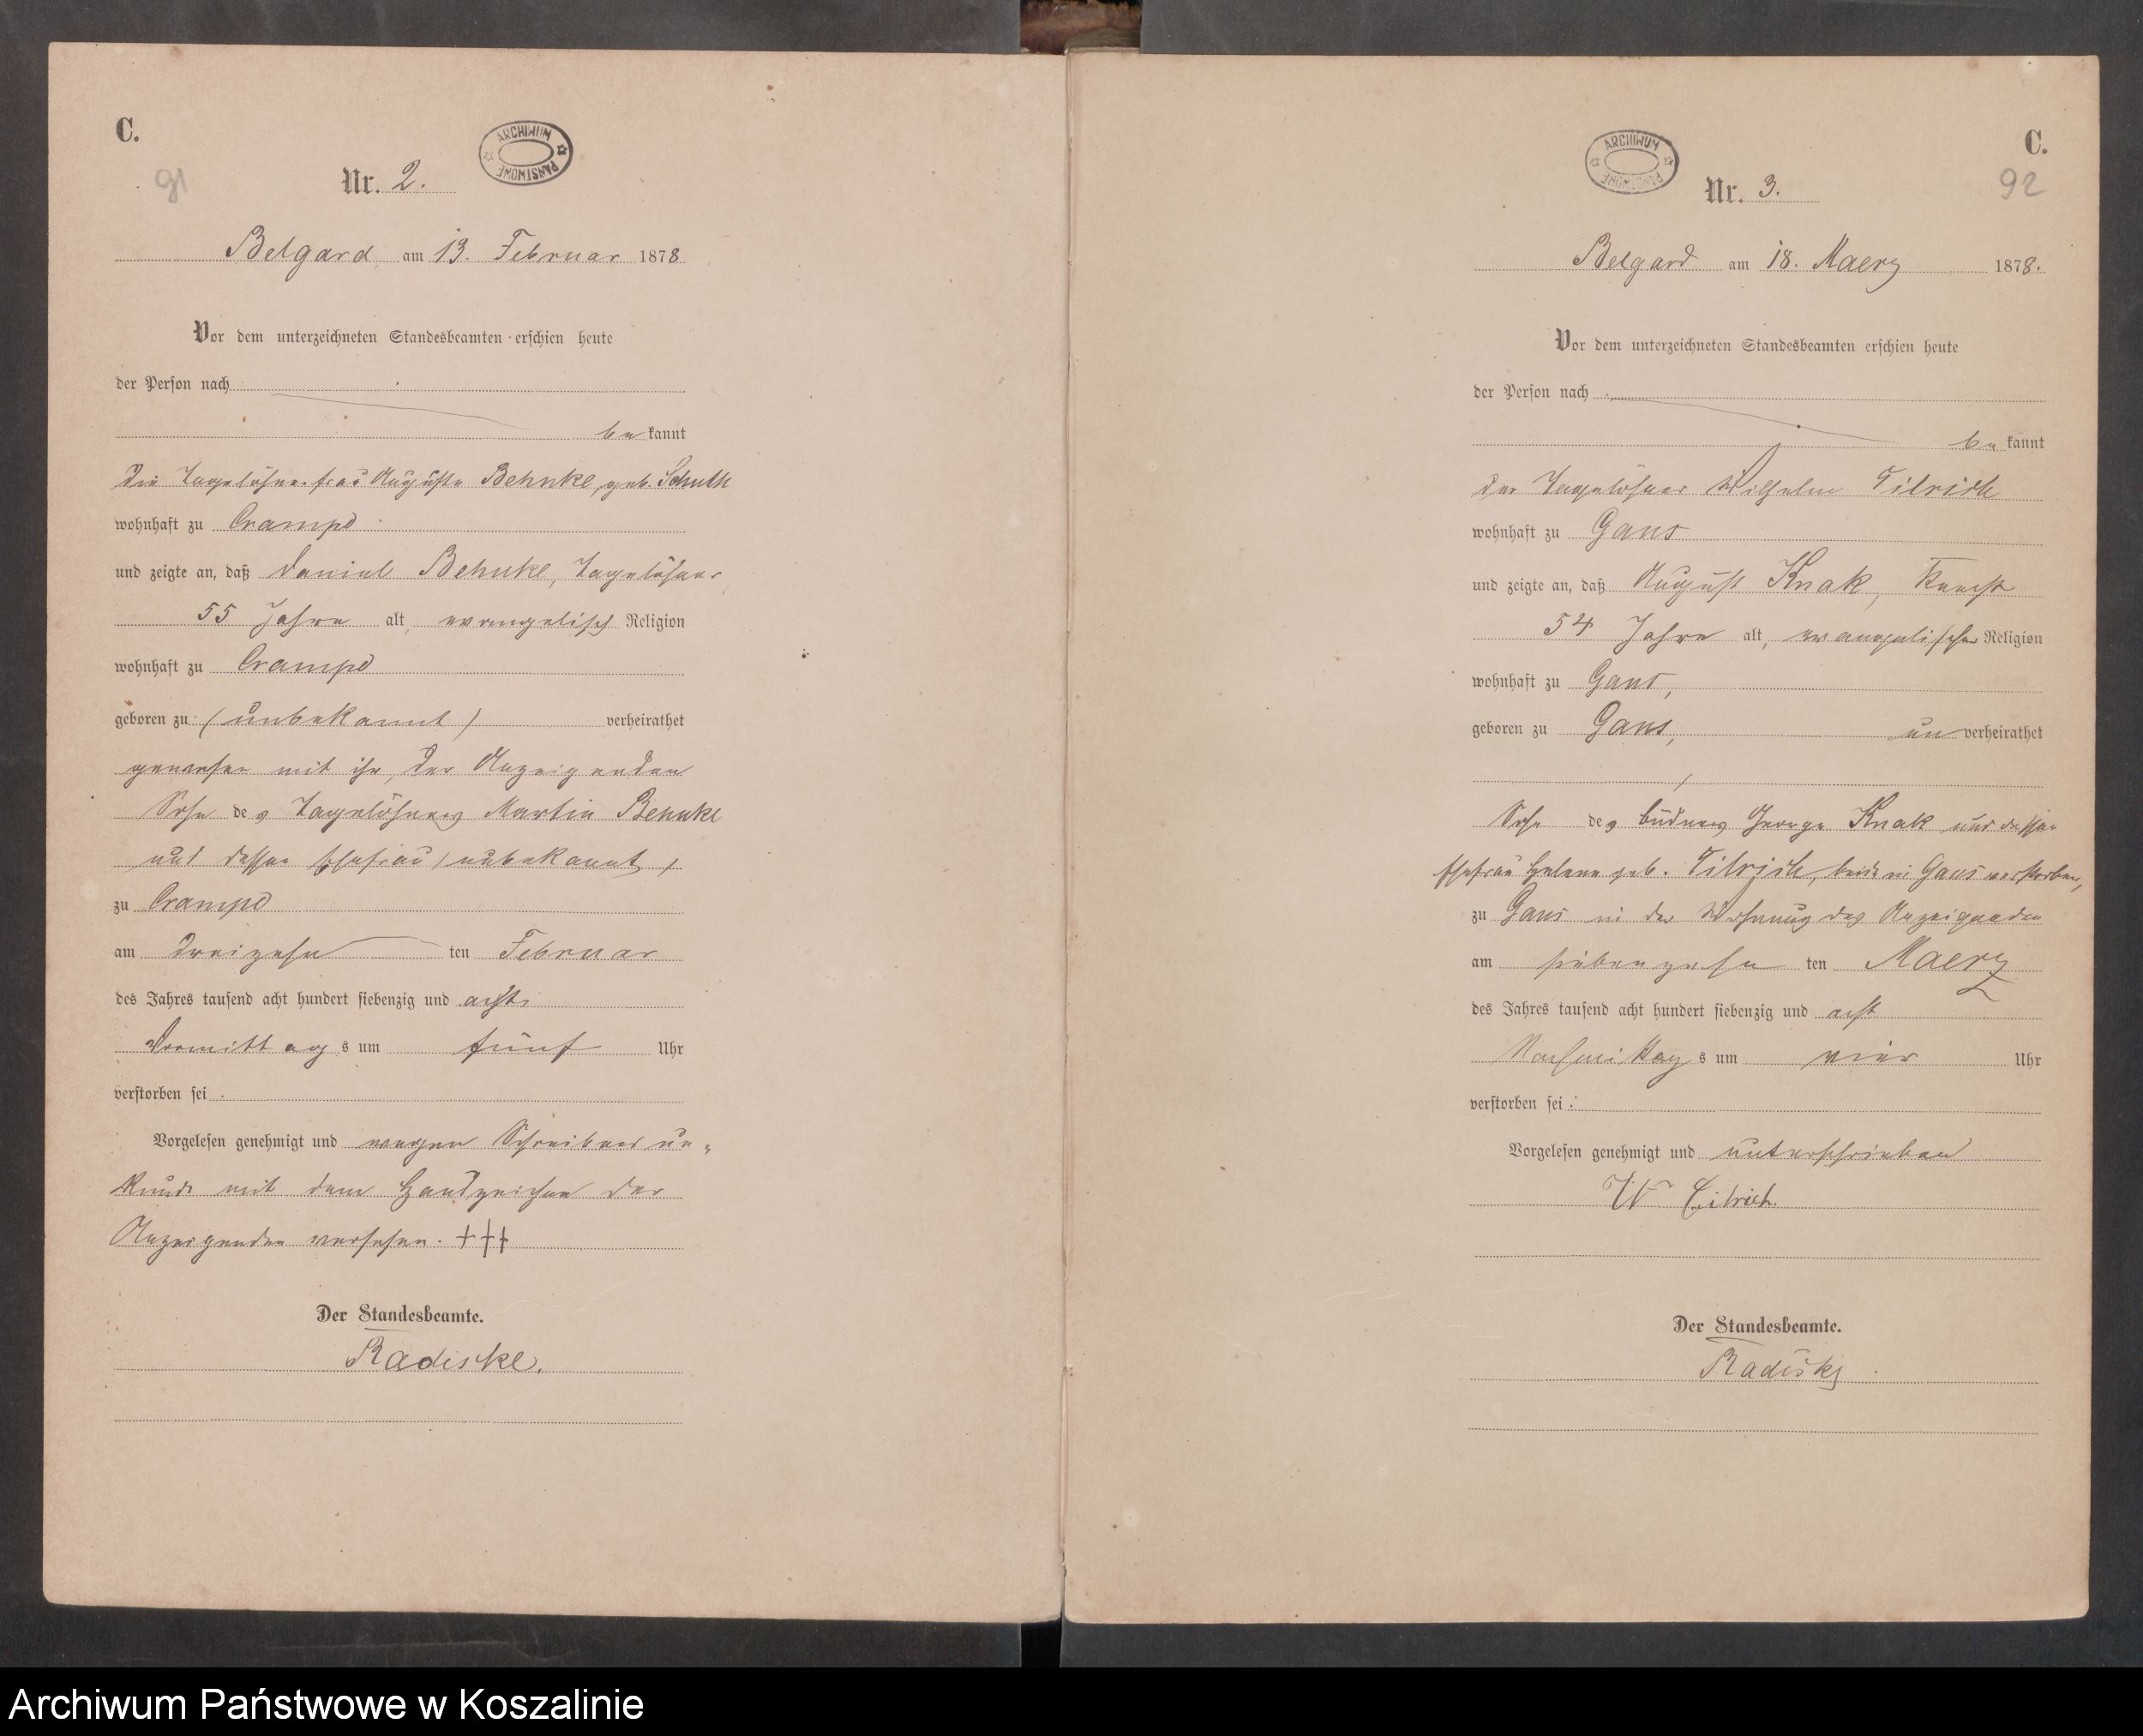 C.
91
Nr. 2.
ARCHIWUM PAŃSTWOWE
Belgard am 13. Februar 1878
Vor dem unterzeichneten Standesbeamten erschien heute
der Person nach
be kannt
die Tagelöhnerfrau Auguste Behnke, geb. Schulz
wohnhaft zu Crampe
und zeigte an, daß Daniel Behnke, Tagelöhner
55 Jahre alt, evangelisch Religion
wohnhaft zu Crampe
geboren zu (unbekannt) verheirathet
gewesen mit ihr, der Anzeigenden
Sohn des Tagelöhners Martin Behnke
und dessen Ehefrau (unbekannt)
zu Crampe
am dreizehn ten Februar
des Jahres tausend acht hundert siebenzig und acht
Vormittag s um fünf Uhr
verstorben sei.
Vorgelesen genehmigt und wegen Schreibens un-
kunde mit dem Handzeichen der
Anzeigenden versehen. +++
Der Standesbeamte.
Radiske.
C.
92
ARCHIWUM PAŃSTWOWE
Nr. 3.
Belgard am 18. Maerz 1878.
Vor dem unterzeichneten Standesbeamten erschien heute
der Person nach
be kannt
der Tagelöhner Wilhelm
wohnhaft zu Gans
und zeigte an, daß August Knak, Knecht
54 Jahre alt, evangelischer Religion
wohnhaft zu Gans,
geboren zu Gans, un verheirathet
Sohn des Büdners George Knak und dessen
Ehefrau Helene geb. beide in Gans verstorben,
zu Gans in der Wohnung des Anzeigenden
am siebenzehn ten Maerz
des Jahres tausend acht hundert siebenzig und acht
Nachmittag s um vier Uhr
verstorben sei.
Vorgelesen genehmigt und unterschrieben
W
Der Standesbeamte.
Radiske
Archiwum Państwowe w Koszalinie